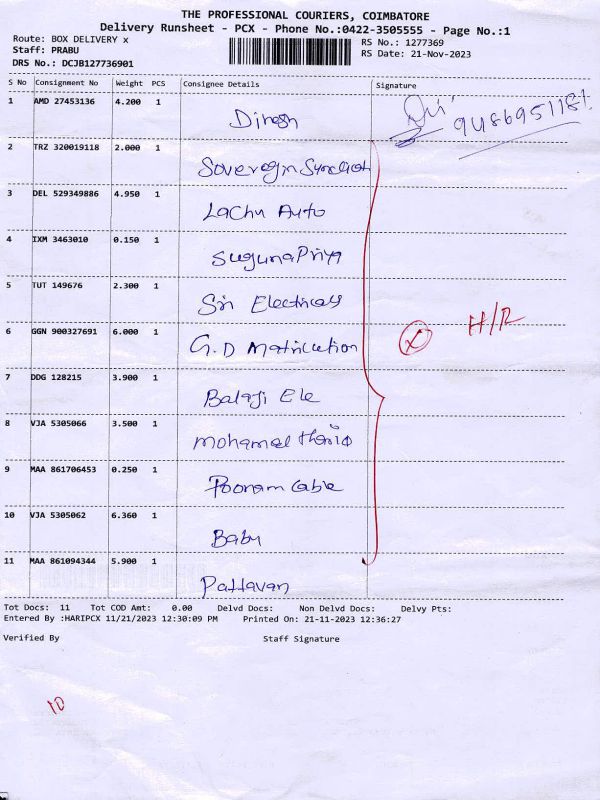 THE PROFESSIONAL COURIERS, COIMBATORE
Delivery Runsheet - PCX - Phone No.:0422-3505555 - Page No.:1
Route: BOX DELIVERY x
Staff: PRABU
DRS No.: DCJB127736901
RS No.: 1277369
RS Date: 21-Nov-2023
S No Consignment No Weight PCS Consignee Details Signature
1 AMD 27453136 4.200 1 Dinesh
2 TRZ 320019118 2.000 1 Soveregin Syndicat
3 DEL 529349886 4.950 1 Lachu Auto
4 IXM 3463010 0.150 1 SugunaPriya
5 TUT 149676 2.300 1 Sri Electricals
6 GGN 900327691 6.000 1 G.D Matriculation X H/R
7 DDG 128215 3.900 1 Balaji Ele
8 VJA 5305066 3.500 1 Mohamed
9 MAA 861706453 0.250 1 Poonam Cable
10 VJA 5305062 6.360 1 Babu
11 MAA 861094344 5.900 1 Pattavan
Tot Docs: 11 Tot COD Amt: 0.00 Delvd Docs: Non Delvd Docs: Delvy Pts:
Entered By :HARIPCX 11/21/2023 12:30:09 PM Printed On: 21-11-2023 12:36:27
Verified By Staff Signature
10